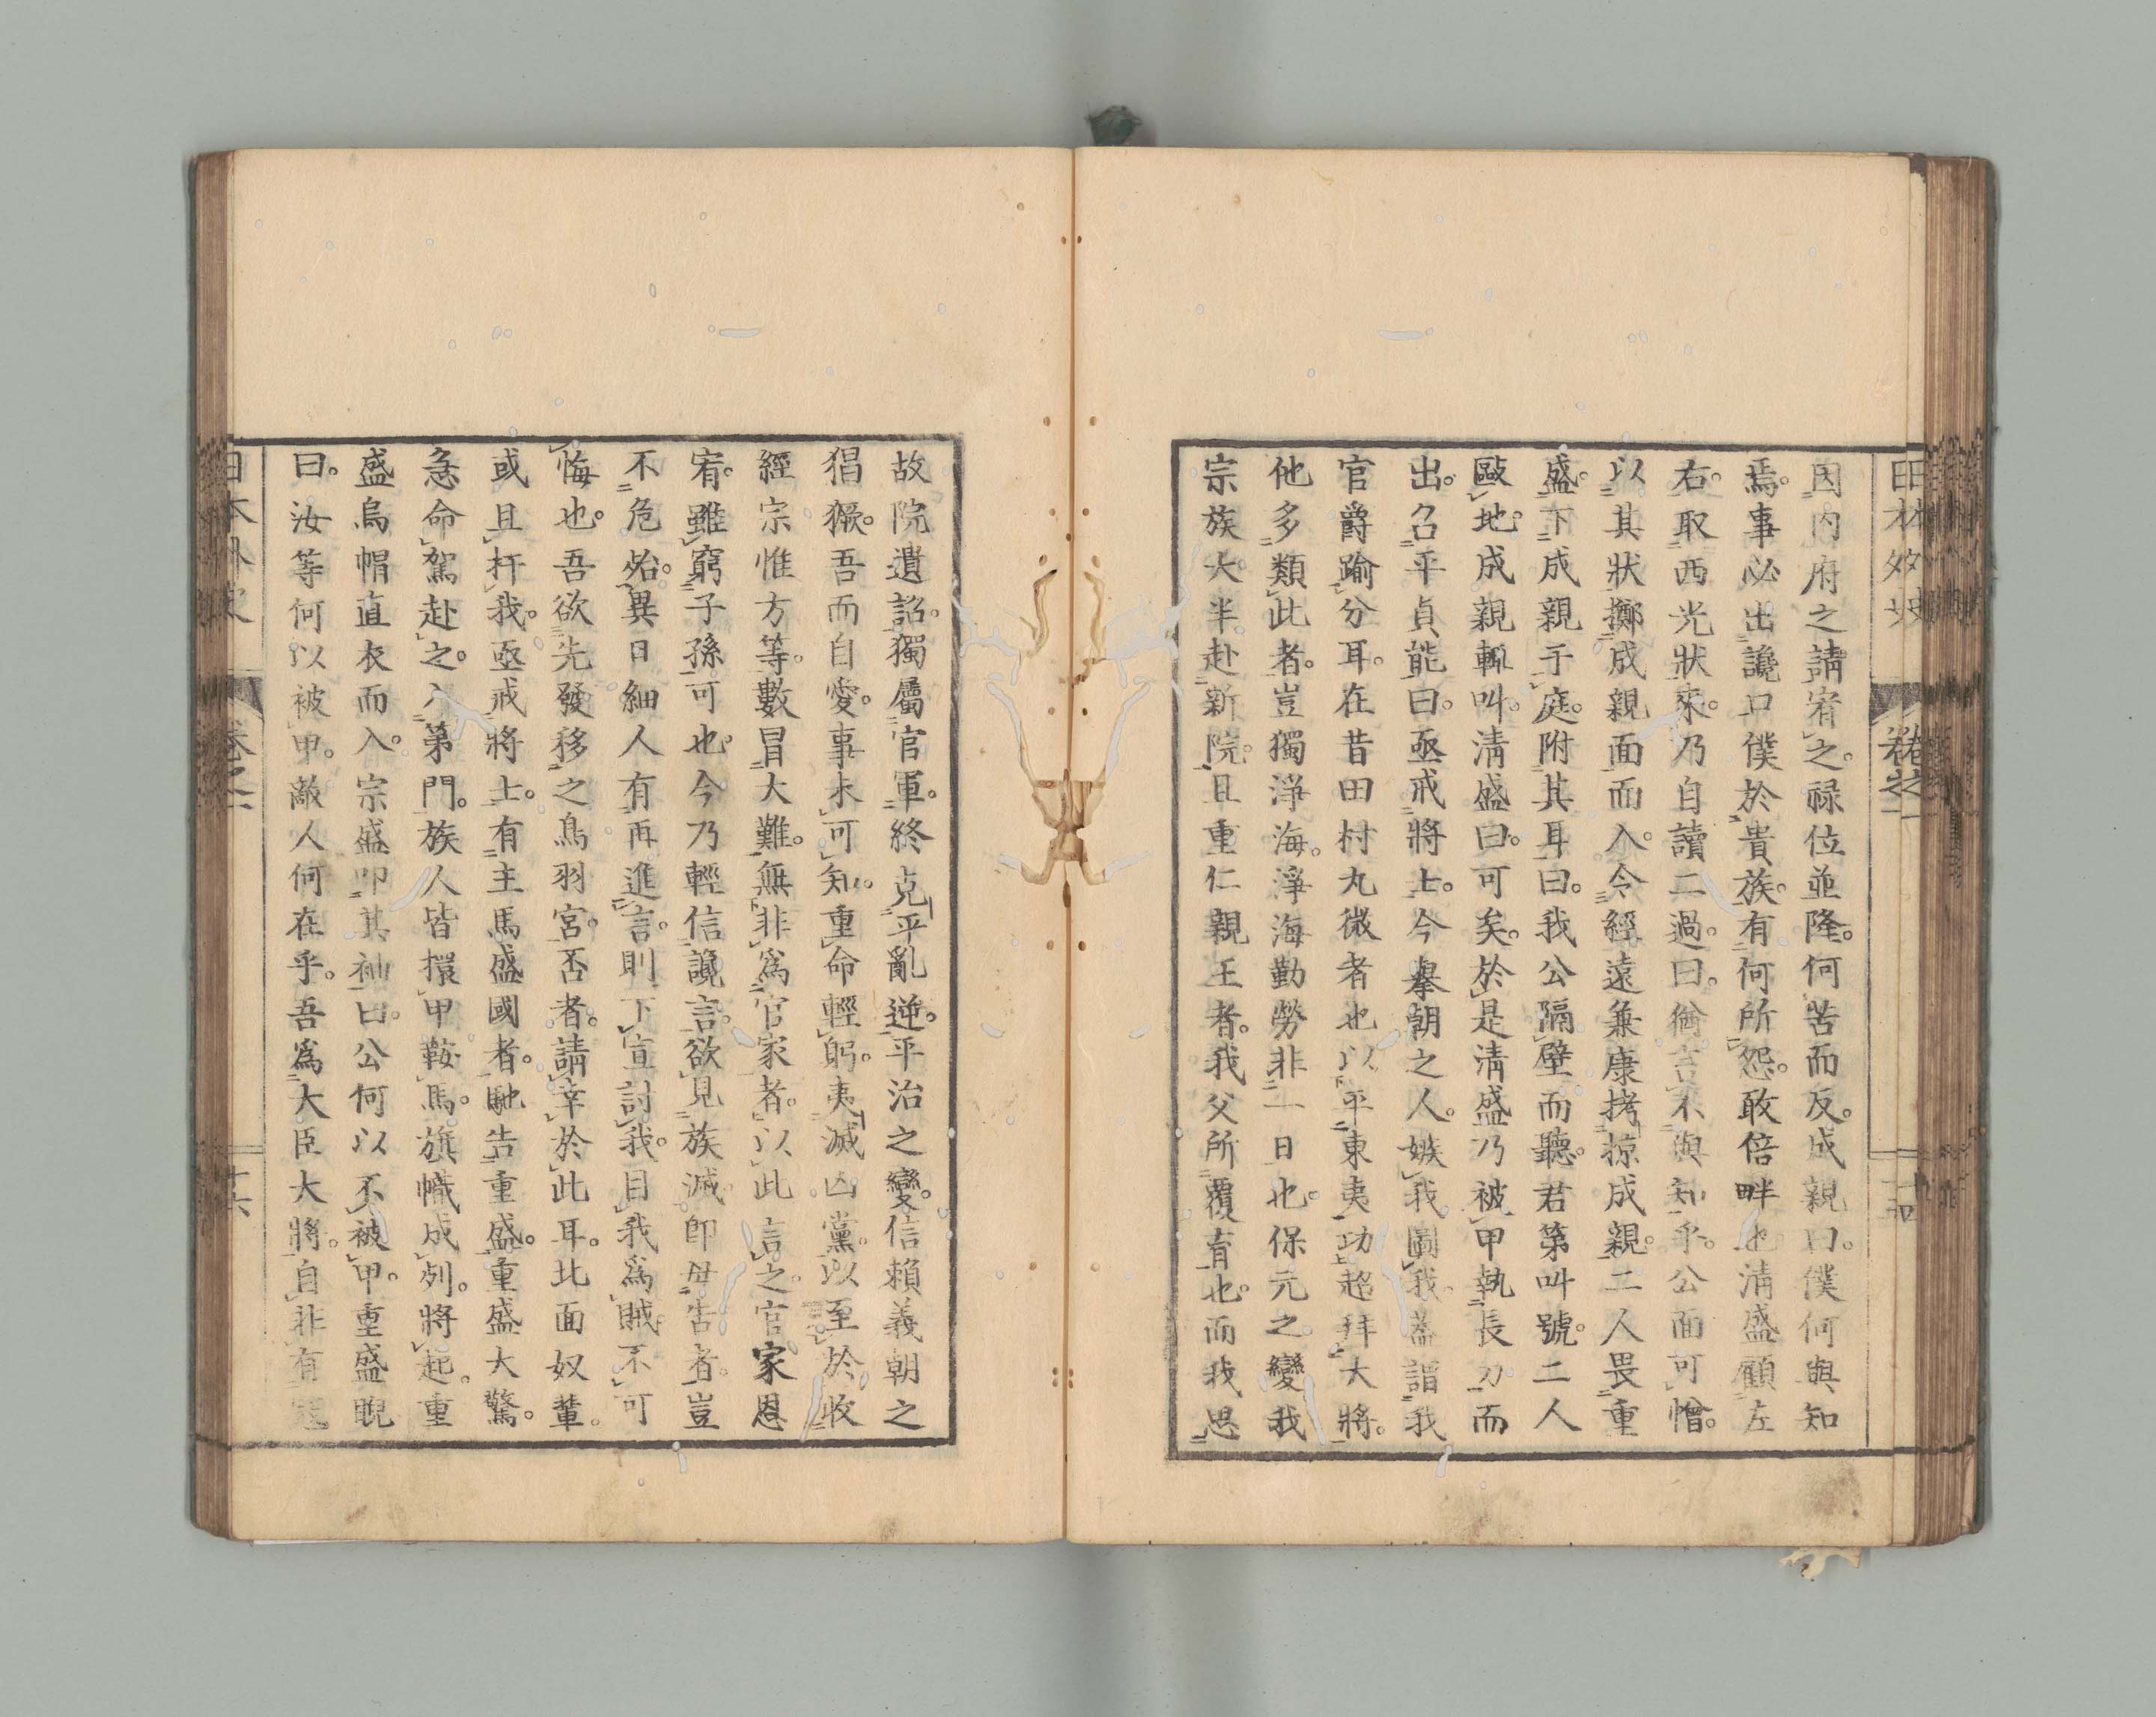 因内府之請宥之。禄位並隆。何苦而反。成親曰。僕何與知
焉。事必出讒口僕於貴族。有何所怨。敢倍畔也清盛顧左
右。取西光狀來。乃自讀二過。曰。尚言不與知乎。公面可憎。
以其狀擲成親面而入。令經遠兼康拷掠成親。二人畏重
盛。下成親于庭。附其耳曰。我公隔壁而聽。君第叫號。二人
毆地。成親輒叫。淸盛曰。可矣。於是清盛乃被甲執長刀。而
出。召平貞能曰。亟戒將士。今擧朝之人。嫉我圖我。蓋謂我
官爵踰分耳。在昔田村丸微者也以平東夷功超拜大將。
他多類此者。豈獨淨海。淨海勤勞非一日也。保元之變我
宗族大半赴新院。且重仁親王者。我父所覆育也。而我思
故院遺詔。獨屬官軍。終克平亂逆。平治之變。信賴義朝之
猖獗。吾而自愛。事未可知。重命輕躬。夷滅凶黨。以至於收
經宗惟方等。數冒大難。無非爲官家者。以此言之。官家恩
宥。雖窮子孫可也。今乃輕信讒言。欲見族滅。卽毋告者。豈
不危殆。異日細人有再進言。則下宣討我。目我爲賊。不可
悔也。吾欲先發移之鳥羽宮。否者。請幸於此耳。北面奴輩。
或且扞我。亟戒將士。有主馬盛國者。馳告重盛。重盛大驚。
急命駕赴之。入第門。族人皆擐甲鞍馬。旗幟成列。將起。重
盛烏帽直衣而入。宗盛卽其袖曰。公何以不被甲。重盛睨
曰。汝等何以被甲。敵人何在乎。吾爲大臣大將。自非有寇
日本外史 卷之一 十六